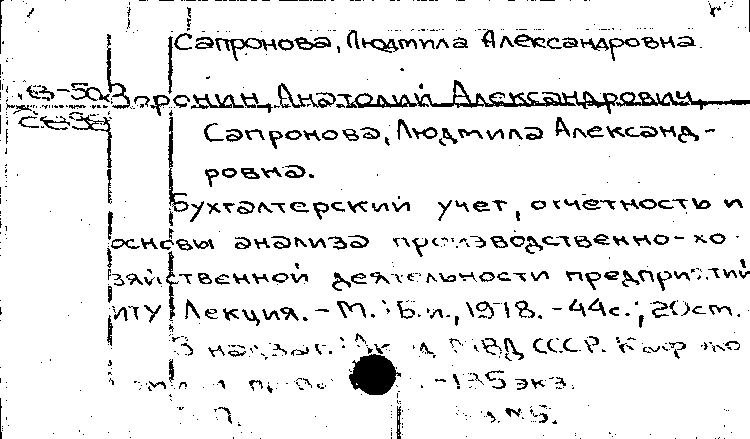 Сапронова, Людмила Александровна
Воронин, Анатолий Александрович,
Сапронова, Людмила Александ-
ровна.
Бухгалтерский учет, отчетность и
основы анализа производственно-хо
зяйственной деятельности предприятий
ИТУ Лекция. - М.: Б.и., 1978. - 44с.; 20см.
В надзаг.: МВД СССР. Каф
- 135 экз.